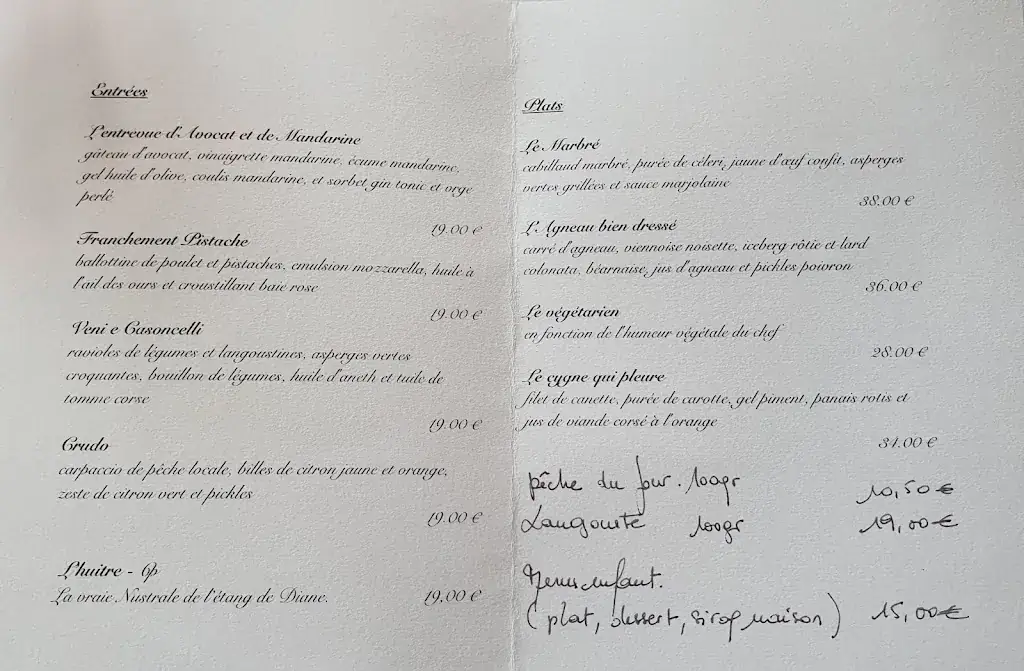 Entrées
L'entrevue d'Avocat et de Mandarine
gâteau d'avocat, vinaigrette mandarine, écume mandarine,
gel huile d'olive, coulis mandarine, et sorbet gin tonic et orge
perlé
19.00 €
Franchement Pistache
ballottine de poulet et pistaches, emulsion mozzarella, huile à
l'ail des ours et croustillant baie rose
19.00 €
Veni e Casoncelli
ravioles de légumes et langoustines, asperges vertes
croquantes, bouillon de légumes, huile d'aneth et tuile de
tomme corse
19.00 €
Crudo
carpaccio de pêche locale, billes de citron jaune et orange,
zeste de citron vert et pickles
19.00 €
L'huître - 6p
La vraie Nustrale de l'étang de Diane. 19,00 €
Plats
Le Marbré
cabillaud marbré, purée de céleri, jaune d'œuf confit, asperges
vertes grillées et sauce marjolaine
38.00 €
L'Agneau bien dressé
carré d'agneau, viennoise noisette, iceberg rôtie et lard
colonata, béarnaise, jus d'agneau et pickles poivron
36.00 €
Le végétarien
en fonction de l'humeur végétale du chef
28.00 €
Le cygne qui pleure
filet de canette, purée de carotte, gel piment, panais rotis et
jus de viande corsé à l'orange
34.00 €
pêche du jour. 100gr 10,50 €
Langouste 100gr 19,00 €
Menu enfant.
(plat, dessert, sirop maison) 15,00 €